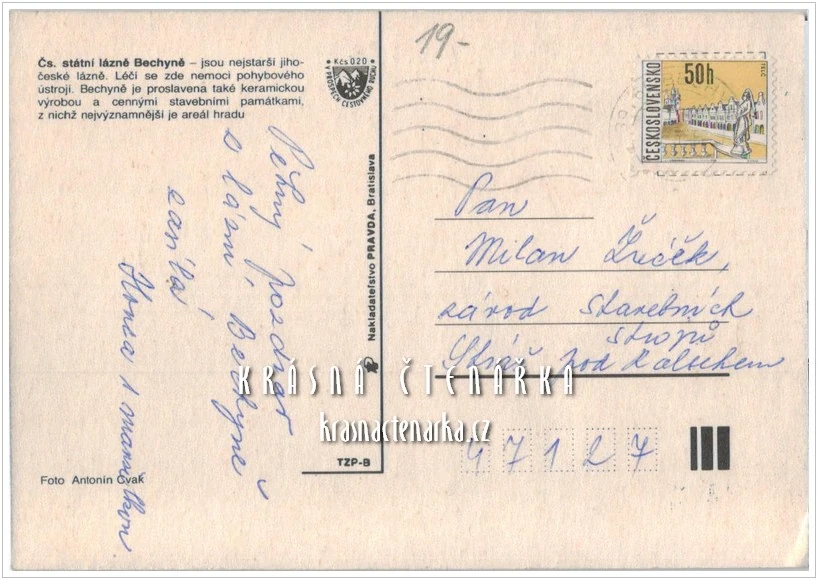 19-
Čs. státní lázně Bechyně – jsou nejstarší jiho-
české lázně. Léčí se zde nemoci pohybového
ústrojí. Bechyně je proslavena také keramickou
výrobou a cennými stavebními památkami,
z nichž nejvýznamnější je areál hradu
Kčs 0.20
V PROSPĚCH CESTOVNÍHO RUCHU
ČESKOSLOVENSKO
50h
TELČ
Pěkný pozdrav
z lázní Bechyně
zasílá
Honza s
Nakladatelství PRAVDA, Bratislava
Pan
Milan
závod stavebních
strojů
Stráž pod Ralskem
47127
KRÁSNÁ ČTENÁŘKA
krasnactenarka.cz
TZP-B
Foto Antonín Cvak